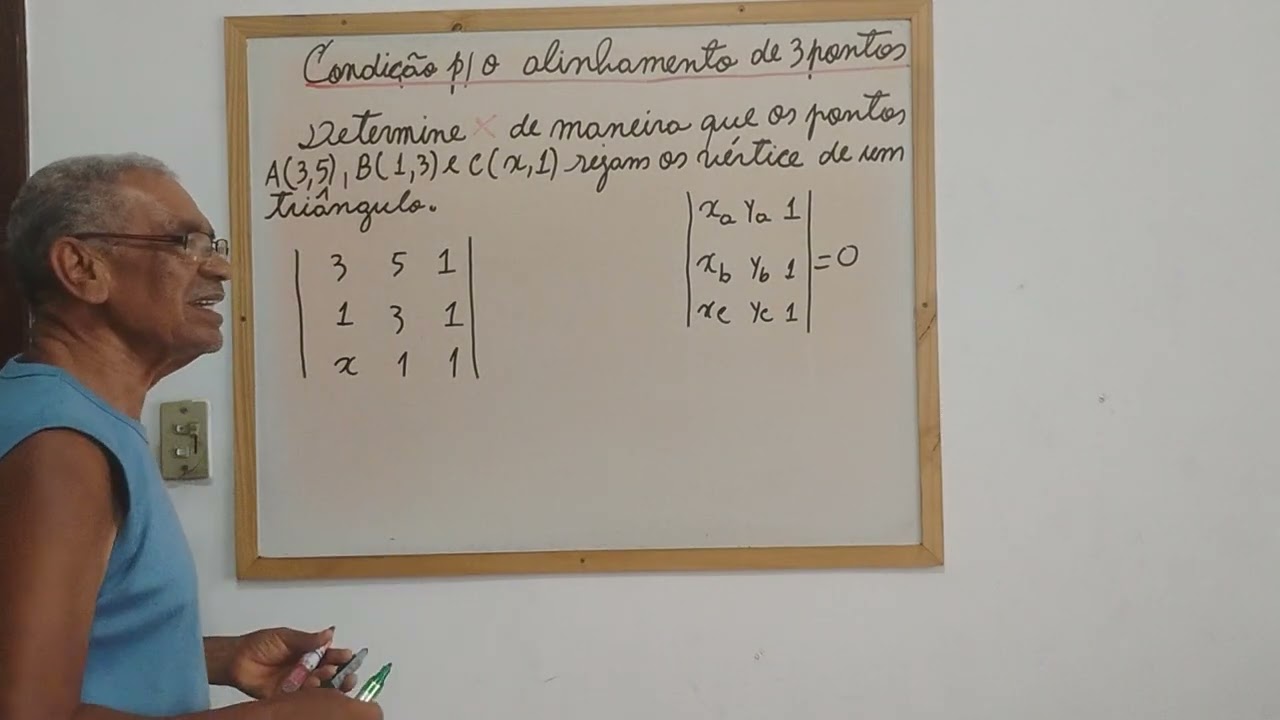 Condição p/ o alinhamento de 3 pontos
Determine x de maneira que os pontos
A(3,5), B(1,3) e C(x,1) sejam os vértice de um
triângulo.
| xa ya 1 |
| xb yb 1 | = 0
| xc yc 1 |
| 3 5 1 |
| 1 3 1 |
| x 1 1 |